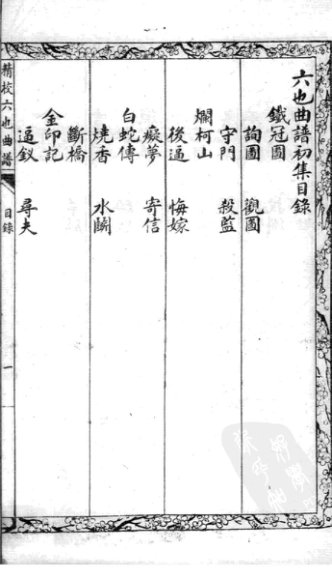 六也曲譜初集目錄
鐵冠圖
詢圖　觀圖
守門　殺監
爛柯山
後逼　悔嫁
癡夢　寄信
白蛇傳
燒香　水鬭
斷橋
金印記
逼釵　尋夫
精校六也曲譜　目錄　一